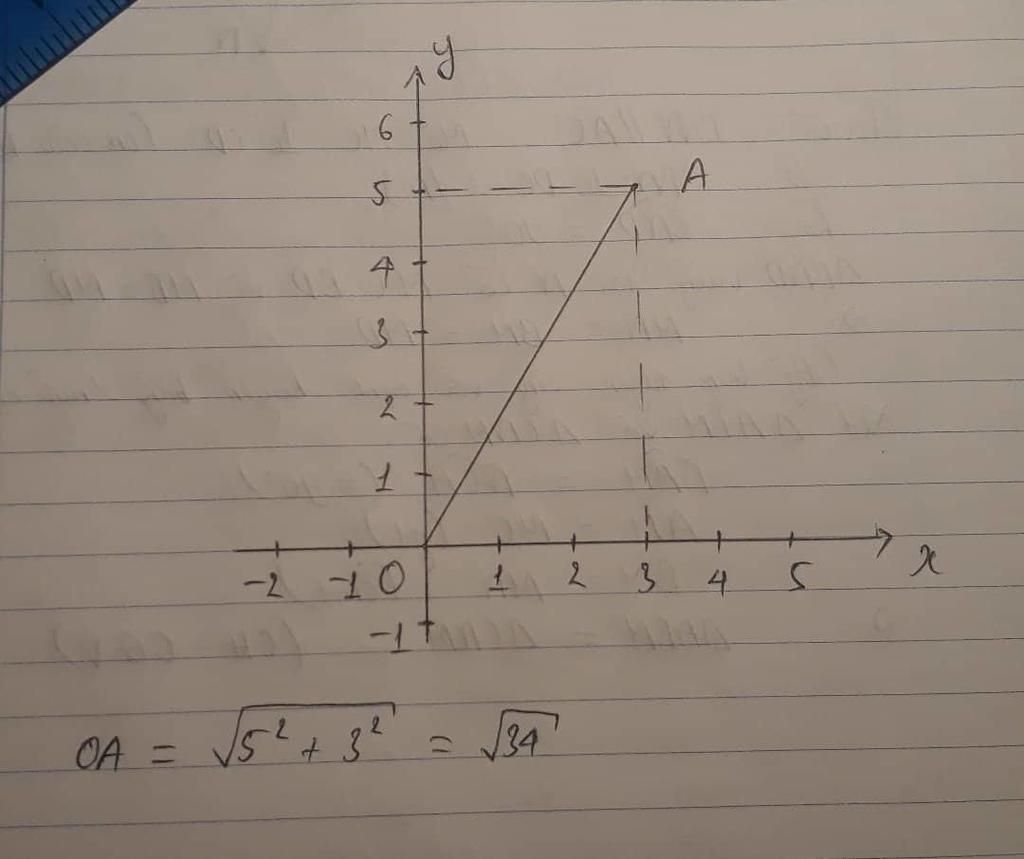 y
6
5 A
4
3
2
1
-2 -1 O 1 2 3 4 5 x
-1
OA = √5² + 3² = √34